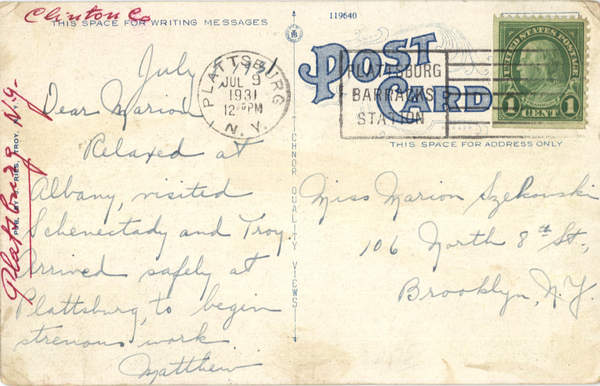 Clinton Co
THIS SPACE FOR WRITING MESSAGES
119640
POST CARD
PLATTSBURG
JUL 9
1931
12 PM
N.Y.
PLATTSBURG
BARRACKS
STATION
UNITED STATES POSTAGE
1 CENT 1
THIS SPACE FOR ADDRESS ONLY
July
Dear Marion
Relaxed at
Albany, visited
Schenectady and Troy.
Arrived safely at
Plattsburg, to begin
strenous work
Matthew
Miss Marion Szekovski
106 North 8th St.,
Brooklyn, N.Y.
Plattsburg N.Y-
TROY, N.Y.
QUALITY VIEWS